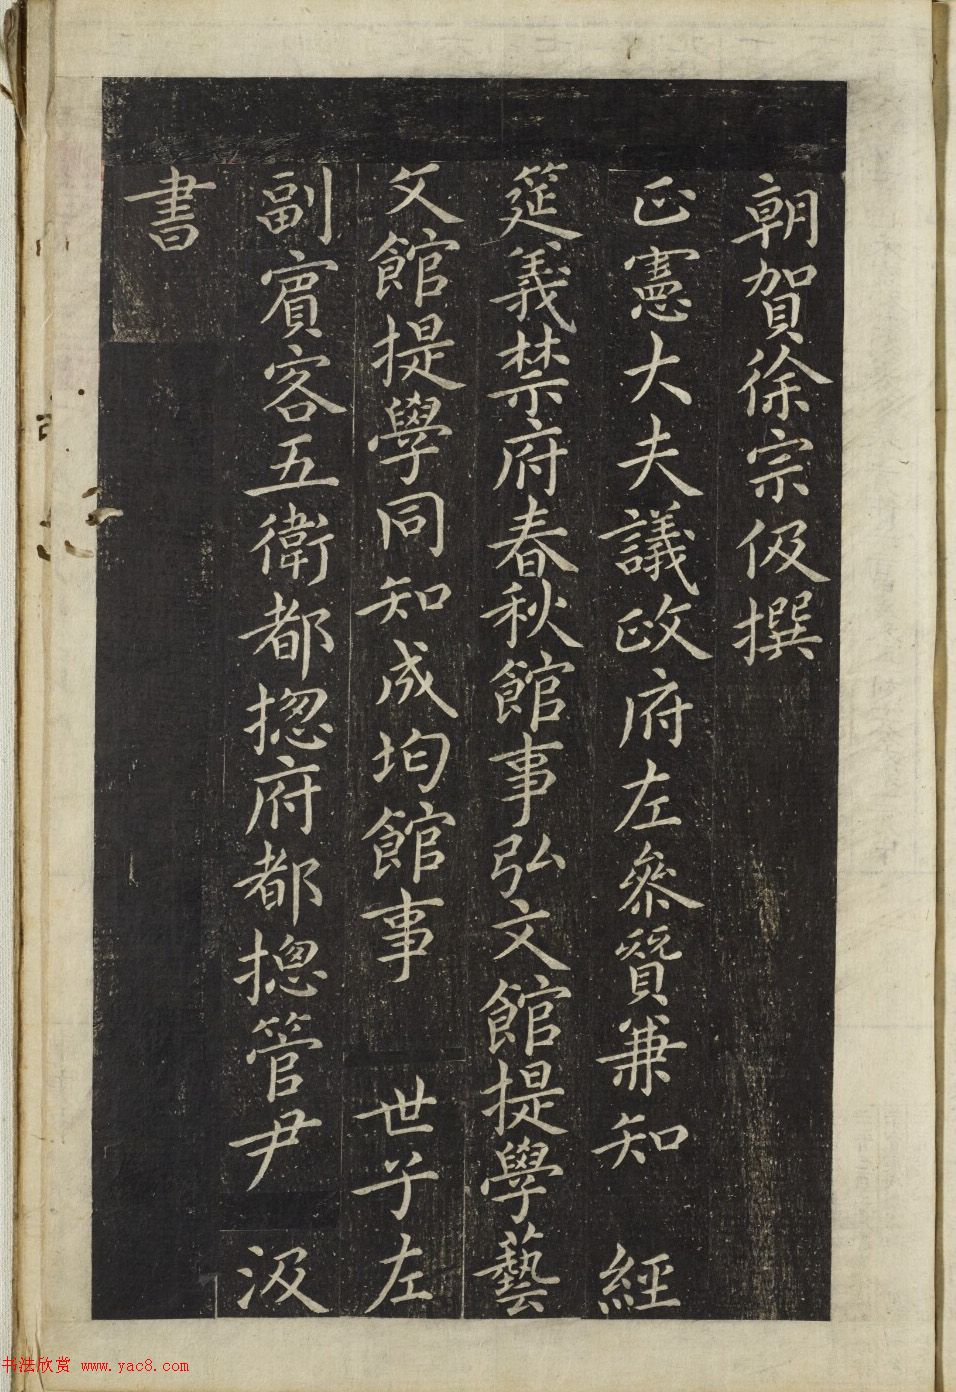 朝賀徐宗伋撰
正憲大夫議政府左參贊兼知 經
筵義禁府春秋館事弘文館提學藝
文館提學同知成均館事 世子左
副賓客五衛都捴府都摠管尹 汲
書
书法欣赏 www.yac8.com